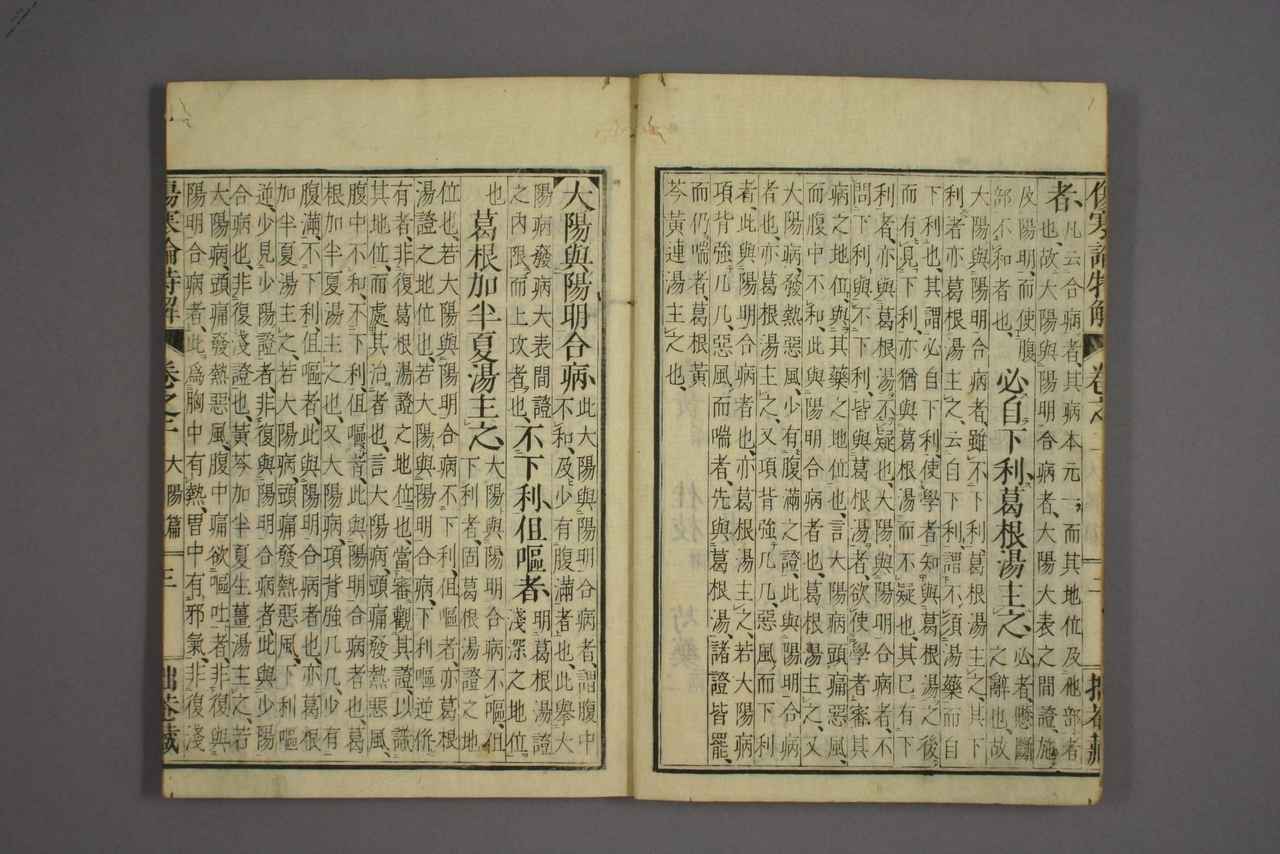 傷寒論特解 卷之二
者、凡云合病者、其病本元一、而其地位及他部者
也、故大陽與陽明合病者、大陽大表之間證、施
及陽明、而使腹
部不和者也、必自下利、葛根湯主之、必者懸斷
之辭也、故
大陽與陽明合病者、雖不下利、葛根湯主之、其下
利者亦葛根湯主之、云自下利、謂不須湯藥而自
下利也、其謂必自下利、使學者知與葛根湯之後、
而有見下利、亦猶與葛根湯而不疑也、其已有下
利者、亦與葛根湯不疑也、大陽與陽明合病者、不
問下利與不下利、皆與葛根湯者、欲使學者審其
病之地位、與其藥之地位也、言大陽病頭痛惡風、
而腹中不和、此與陽明合病者也、葛根湯主之、又
大陽病、發熱惡風、少有腹滿之證、此與陽明合病
者也、亦葛根湯主之、又項背強几几、惡風、而下利
者、此與陽明合病者也、亦葛根湯主之、若大陽病
項背強几几、惡風、而喘者、先與葛根湯、諸證皆罷、
而仍喘者、葛根黃
芩黃連湯主之也、
大陽與陽明合病、此大陽與陽明合病者、謂腹中
不和、及少有腹滿者也、此舉大
陽病發病大表間證、明葛根湯證
之內限、而上攻者也、不下利、但嘔者、淺深之地位
也、葛根加半夏湯主之、大陽與陽明合病不嘔、但
下利者、固葛根湯證之地
位也、若大陽與陽明合病不下利、但嘔者、亦葛根
湯證之地位也、若大陽與陽明合病、下利逆作
有者、非復葛根湯證之地位也、當審觀其證、以識
其地位、而處其治者也、言大陽病、頭痛發熱惡風、
腹中不和、不下利但嘔者、此與陽明合病者也、葛
根加半夏湯主之也、又大陽病、項背強几几、少有
腹滿、不下利、但嘔者、此與陽明合病者也、亦葛根
加半夏湯主之、若大陽病、頭痛發熱惡風、下利嘔
逆、少見少陽證者、非復與陽明合病者、此與少陽
合病也、非復淺證也、黃芩加半夏生薑湯主之、若
大陽病、頭痛發熱惡風、腹中痛欲嘔吐者、非復與
陽明合病者、此爲胸中有熱、胃中有邪氣、非復淺
傷寒論特解 卷之二 大陽篇 三 拙巷藏